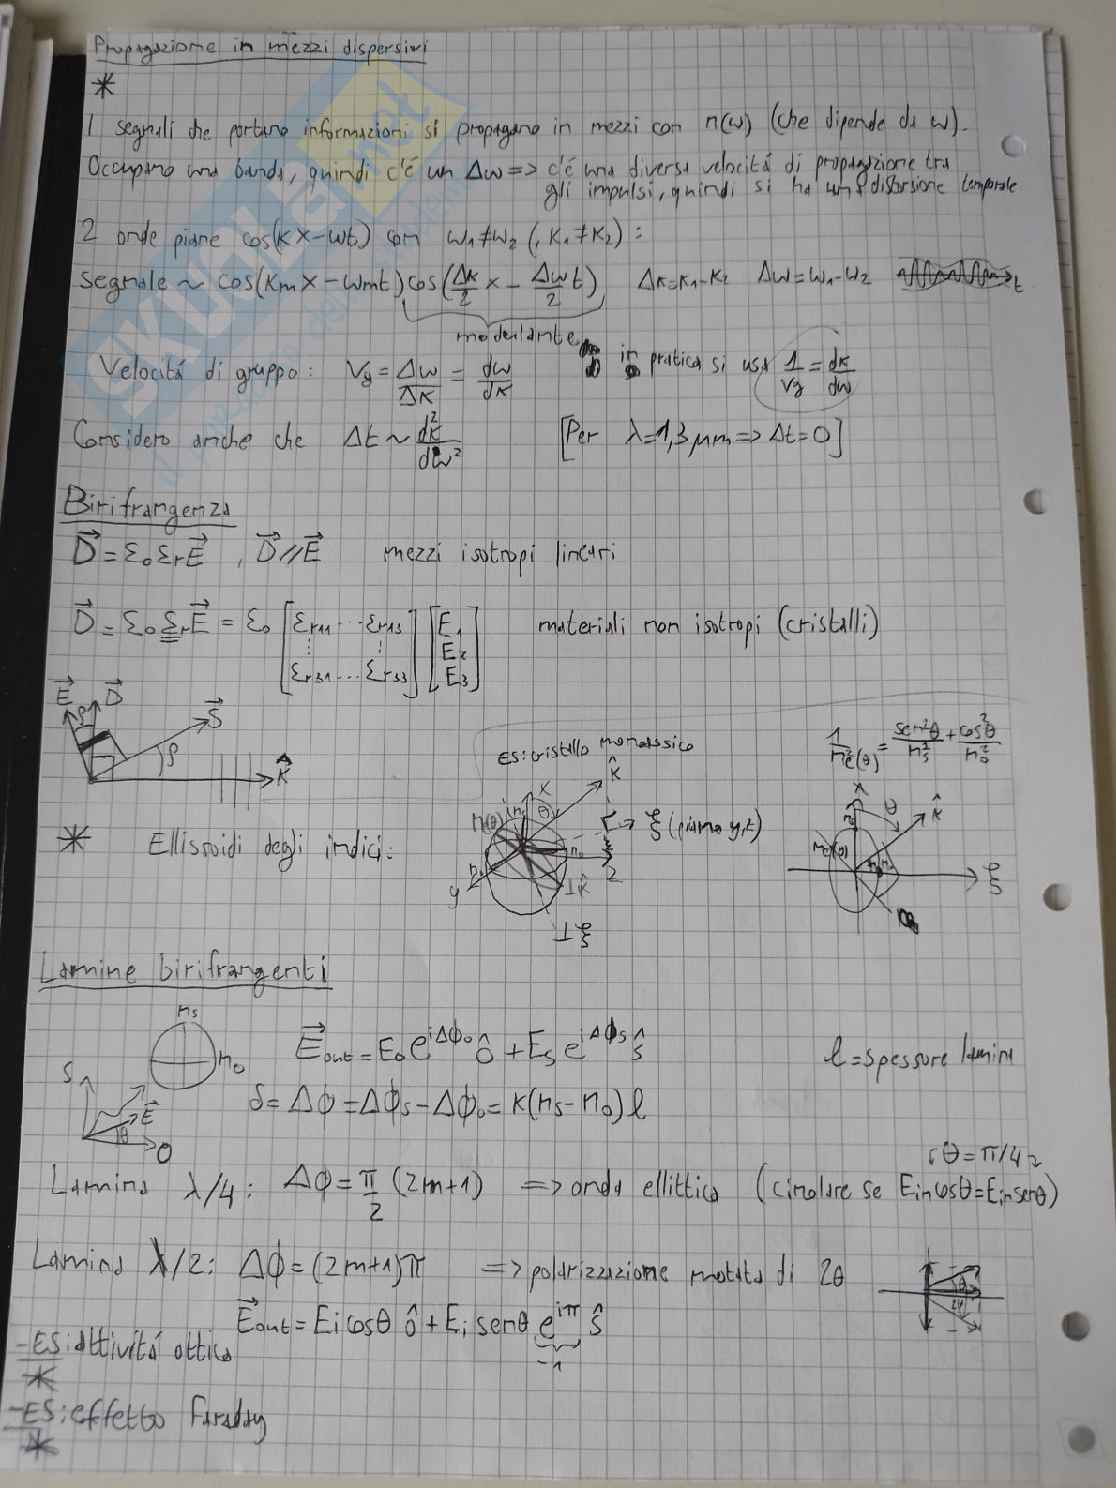 Propagazione in mezzi dispersivi
*
I segnali che portano informazioni si propagano in mezzi con n(ω) (che dipende da ω).
Occupano una banda, quindi c'é un Δω => c'é una diversa velocitá di propagazione tra
gli impulsi, quindi si ha una distorsione temporale
2 onde piane cos(kx-ωt) con ω₁≠ω₂ (, k₁≠k₂) :
segnale ~ cos(kmx-ωmt)cos(Δk/2 x - Δω/2 t) Δk=k₁-k₂ Δω=ω₁-ω₂ t
modulante
Velocitá di gruppo: Vg = Δω/Δk = dω/dk in pratica si usa 1/Vg = dk/dω
Considero anche che Δt ~ dk²/dω² [Per λ=1,3μm => Δt=0]
Birifrangenza
D⃗ = ε₀εrE⃗ , D⃗//E⃗ mezzi isotropi lineari
D⃗ = ε₀εrE⃗ = ε₀ [εr11 ... εr13 ⋮ ⋮ εr31 ... εr33] [E₁ E₂ E₃] materiali non isotropi (cristalli)
E⃗ D⃗ S⃗
ρ ρ k̂
es: cristallo monoassico
1/n²e(θ) = sen²θ/n²s + cos²θ/n²o
x θ k̂
* Ellissoidi degli indici: n(θ) ξ (piano y,z)
y ⊥k̂ z ⊥ξ
x θ k̂ ne(θ) ξ
Lamine birifrangenti
ns no
E⃗out = Eo e^iΔϕo ô + Es e^iΔϕs ŝ l = spessore lamina
S E⃗ θ O
δ = Δϕ = Δϕs - Δϕo = k(ns-no)l
θ=π/4
Lamina λ/4: Δϕ = π/2 (2m+1) => onda ellittica (circolare se Eincosθ=Einsenθ)
Lamina λ/2: Δϕ = (2m+1)π => polarizzazione ruotata di 2θ
E⃗out = Eicosθ ô + Ei senθ e^iπ ŝ
-1
-ES: attivitá ottica
*
-ES: effetto Faraday
*